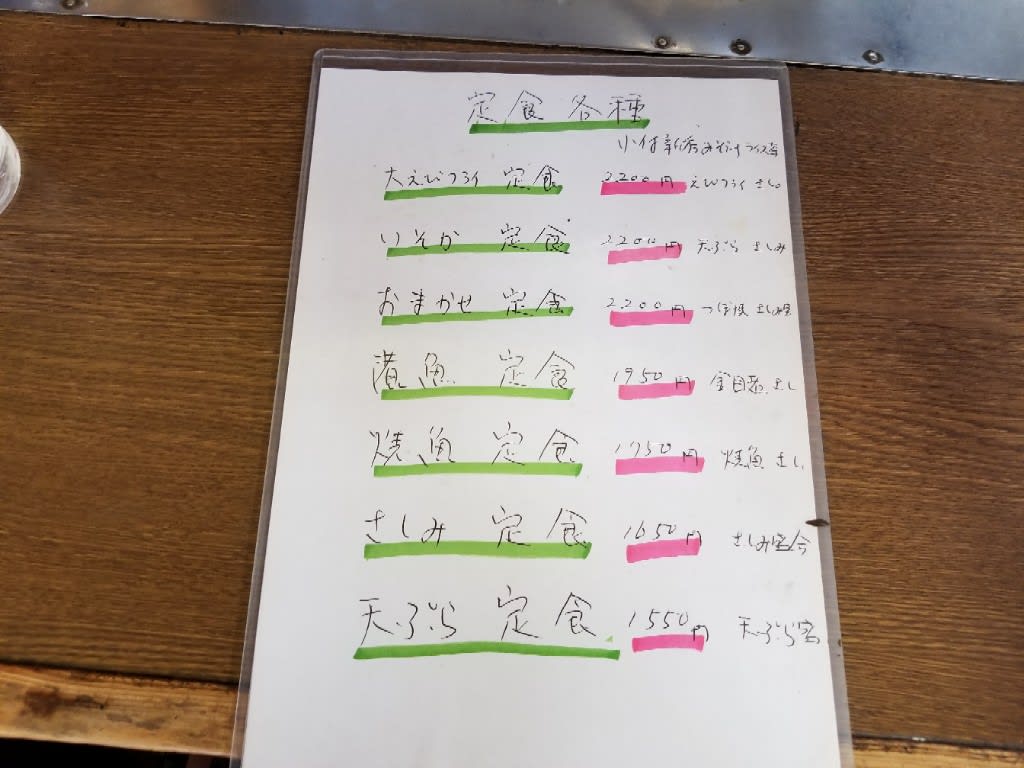 定食各種
小付 新香 みそ汁 ライス
大えびフライ 定食 2200円 えびフライ さし
いそか 定食 2200円 天ぷら さしみ
おまかせ 定食 2200円 さしみ
煮魚 定食 1950円 金目 さし
焼魚 定食 1750円 焼魚 さし
さしみ 定食 1650円 さしみ
天ぷら 定食 1550円 天ぷら